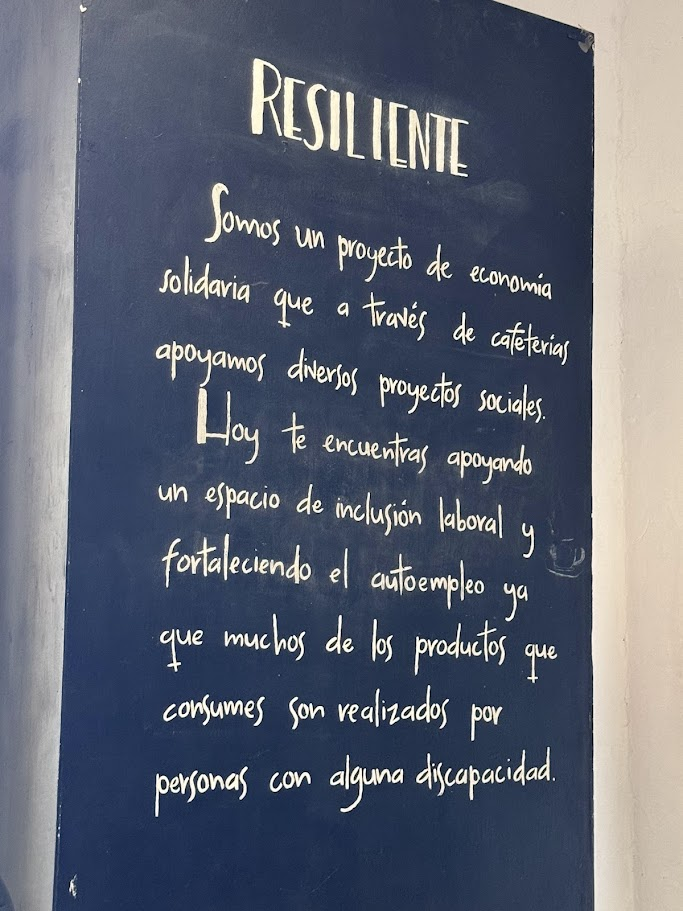 RESILIENTE
Somos un proyecto de economía
solidaria que a través de cafeterías
apoyamos diversos proyectos sociales.
Hoy te encuentras apoyando
un espacio de inclusión laboral y
fortaleciendo el autoempleo ya
que muchos de los productos que
consumes son realizados por
personas con alguna discapacidad.